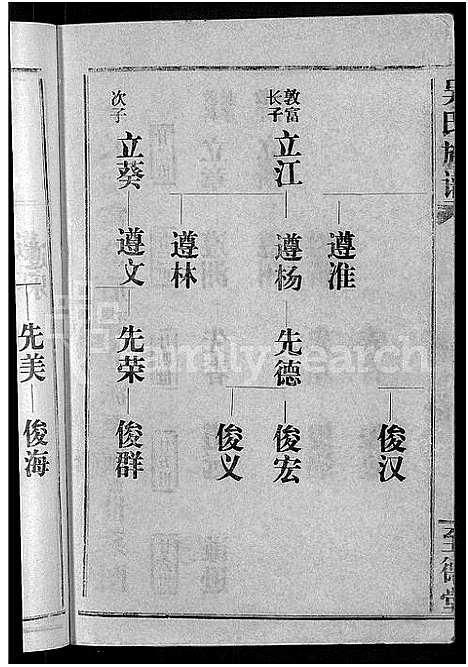 吴氏族谱
至德堂
敦富长子
立江
遵淮
遵杨
遵林
先德
俊汉
俊宏
俊义
次子
立葵
遵文
先荣
俊群
先美
俊海
familysearch